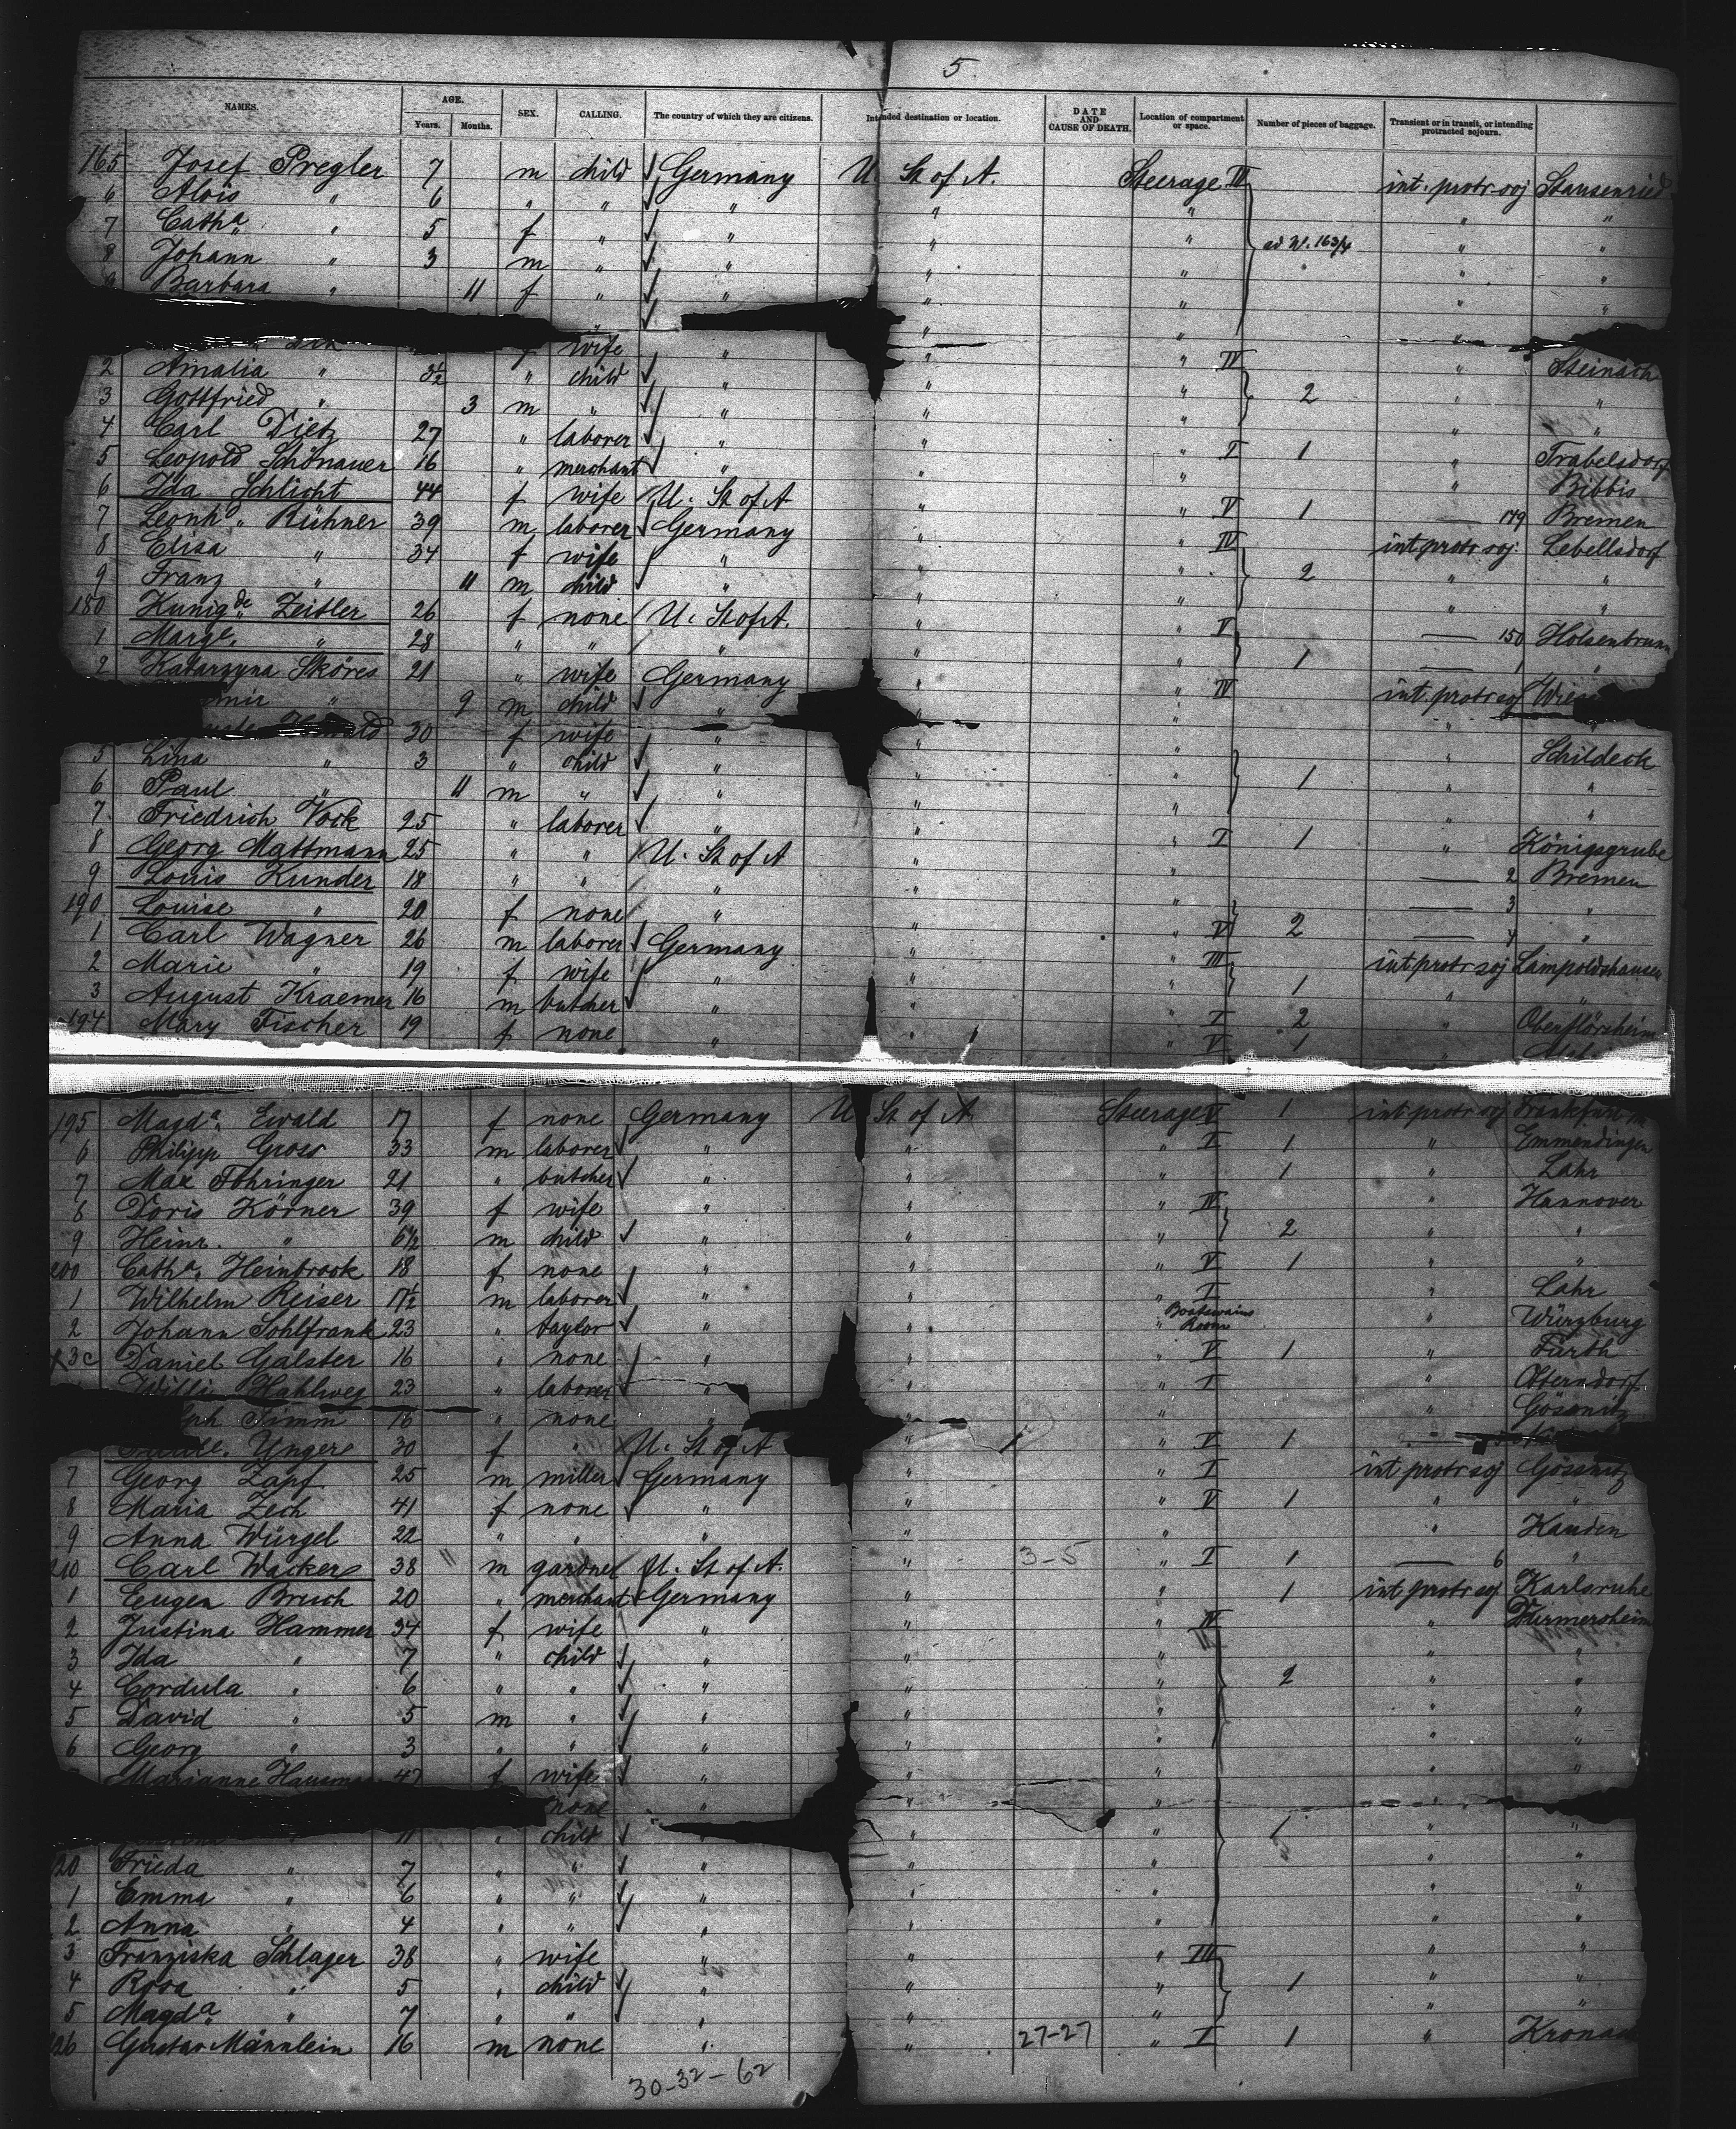 5
NAMES. AGE. Years. Months. SEX. CALLING. The country of which they are citizens. Intended destination or location. DATE AND CAUSE OF DEATH. Location of compartment or space. Number of pieces of baggage. Transient or in transit, or intending protracted sojourn.
165 Josef Pregler 7 m child Germany U. St of A. Steerage IV int. protr soj Stausenried
6 Alois " 6 " " " " " " "
7 Cath.a " 5 f " " " " ad N. 163/4 " "
8 Johann " 3 m " " " " " "
9 Barbara " 11 f " " " " " "
wife " " " IV " Steinach
2 Amalia " 3½ " child " " " 2 " "
3 Gottfried " 3 m " " " " " "
4 Carl Dietz 27 " laborer " " " I 1 " Trabelsdorf
5 Leopold Schönauer 16 " merchant " " " " Bibbis
6 Ida Schlicht 44 f wife U. St of A " " V 1 — 149 Bremen
7 Leonh.d Rühner 39 m laborer Germany " " IV int protr soj. Lebellsdorf
8 Elisa " 34 f wife " " " 2 " "
9 Franz " 11 m child " " " " "
180 Kunigde Zeitler 26 f none U. St of A. " " V — 150 Holsenbrunn
1 Marge. " 28 " " " " " 1 — 1 "
2 Katarzyna Skóres 21 " wife Germany " " IV int. protr soj
" 9 m child " " " "
30 f wife " " " " Schildeck
5 Lina " 3 " child " " " 1 " "
6 Paul " 11 m " " " " " "
7 Friedrich Vock 25 " laborer " " " I 1 " Königsgrube
8 Georg Mattmann 25 " " U. St of A " " — 2 Bremen
9 Louis Kunder 18 " " " " " — 3 "
190 Louise " 20 f none " " " V 2 — 4 "
1 Carl Wagner 26 m laborer Germany " " III int protr soj Lampoldshausen
2 Marie " 19 f wife " " " 1 " "
3 August Kraemer 16 m butcher " " " I 2 " Oberflörsheim
194 Mary Fischer 19 f none " " " V 1 "
195 Magd.a Ewald 17 f none Germany U St of A Steerage V 1 int protr soj Frankfurt
6 Philipp Gross 33 m laborer " " " I 1 " Emmendingen
7 Max Fohringer 21 " butcher " " " 1 " Lahr
8 Doris Körner 39 f wife " " " IV " Hannover
9 Heinr. " 6½ m child " " " 2 " "
200 Cath.a Heinbrook 18 f none " " " V 1 " "
1 Wilhelm Reiser 17½ m laborer " " " I " Lahr
2 Johann Sohlfrank 23 " taylor " " " Boatswains Room " Würzburg
x 3c Daniel Galster 16 " none " " " V 1 " Fürth
Willi Hahlweg 23 " laborer " " " I " Otterndorf
Timm 16 " none " " " " Gössnitz
Unger 30 f " U. St of A " " V 1
7 Georg Zapf 25 m miller Germany " " I int protr soj Gössnitz
8 Maria Zech 41 f none " " " V 1 " "
9 Anna Würgel 22 " " " " " " Kanden
210 Carl Wacker 38 " m gardner U. St of A. " 3-5 " I 1 — 6 "
1 Eugen Bresch 20 " merchant Germany " " 1 int protr soj Karlsruhe
2 Justina Hammer 34 f wife " " " IV " Durmersheim
3 Ida " 7 " child " " " " "
4 Cordula " 6 " " " " " 2 " "
5 David " 5 m " " " " " "
6 Georg " 3 " " " " " " "
Marianne 47 f wife " " " " "
none " " " "
11 " child " " " 1 " "
20 Frieda " 7 " " " " " " "
1 Emma " 6 " " " " " " "
2 Anna " 4 " " " " " " "
3 Franziska Schlager 38 " wife " " " III " "
4 Rosa " 5 " child " " " 1 " "
5 Magd.a " 7 " " " " " " "
226 Gustav Männlein 16 m none " " 27-27 " I 1 " Kronau
30-32-62